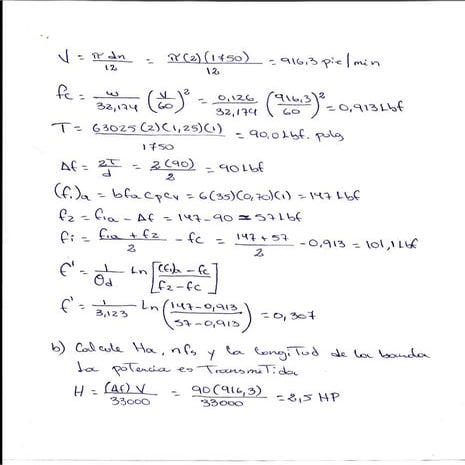 V = π dn / 12 = π(2)(1750) / 12 = 916,3 pie/min
fc = w / 32,174 (V/60)² = 0,126 / 32,174 (916,3 / 60)² = 0,913 Lbf
T = 63025(2)(1,25)(1) / 1750 = 90,0 Lbf. pulg
Δf = 2T / d = 2(90) / 2 = 90 Lbf
(f₁)a = bfa Cp Cv = 6(35)(0,70)(1) = 147 Lbf
f2 = f1a - Δf = 147 - 90 = 57 Lbf
fi = f1a + f2 / 2 - fc = 147 + 57 / 2 - 0,913 = 101,1 Lbf
f' = 1 / θd Ln [(f1)a - fc / f2 - fc]
f' = 1 / 3,123 Ln (147 - 0,913 / 57 - 0,913) = 0,307
b) Calcule Ha, nfs y la longitud de la banda
La potencia es Transmitida
H = (Δf) V / 33000 = 90(916,3) / 33000 = 2,5 HP